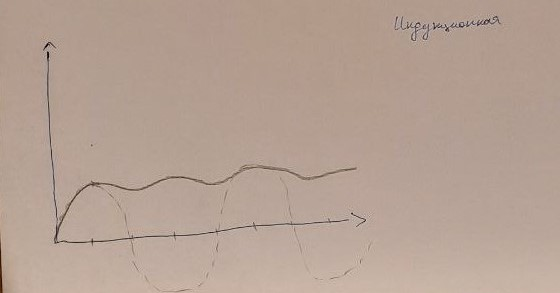 Индукционная